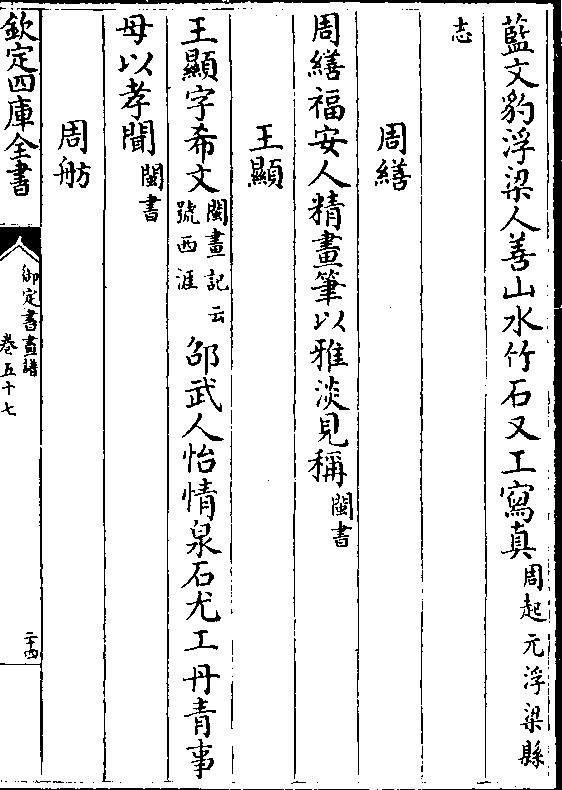 藍文豹浮梁人善山水竹石又工寫真周起元浮梁縣
志
周繕
周繕福安人精畫筆以雅淡見稱閩書
王顯
王顯字希文閩畫記云號西涯邵武人怡情泉石尤工丹青事
母以孝聞閩書
周舫
欽定四庫全書
御定書畫譜
卷五十七
二十四